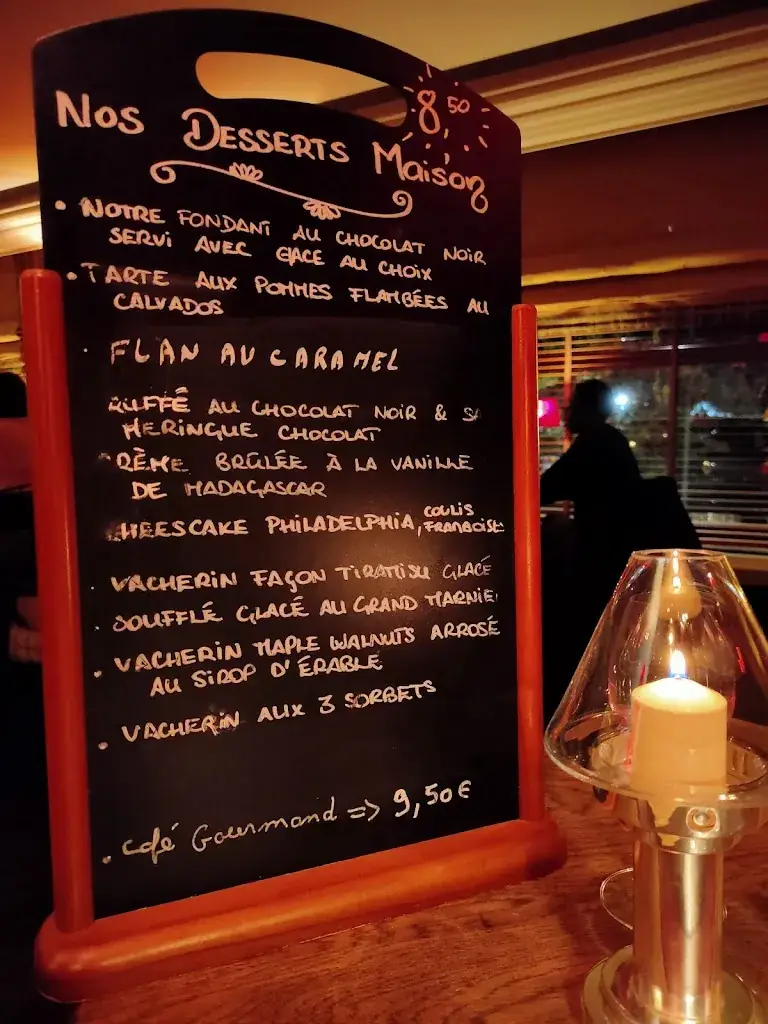 8 50
Nos DESSERTS Maison
• NOTRE FONDANT AU CHOCOLAT NOIR
SERVI AVEC GLACE AU CHOIX
• TARTE AUX POMMES FLAMBÉES AU
CALVADOS
• FLAN AU CARAMEL
AU CHOCOLAT NOIR & SA
MERINGUE CHOCOLAT
CRÈME BRÛLÉE À LA VANILLE
DE MADAGASCAR
CHEESCAKE PHILADELPHIA, COULIS
FRAMBOISE
• VACHERIN FAÇON TIRAMISU GLACÉ
• SOUFFLÉ GLACÉ AU GRAND MARNIE
• VACHERIN MAPLE WALNUTS ARROSÉ
AU SIROP D'ÉRABLE
• VACHERIN AUX 3 SORBETS
• Café Gourmand => 9,50€